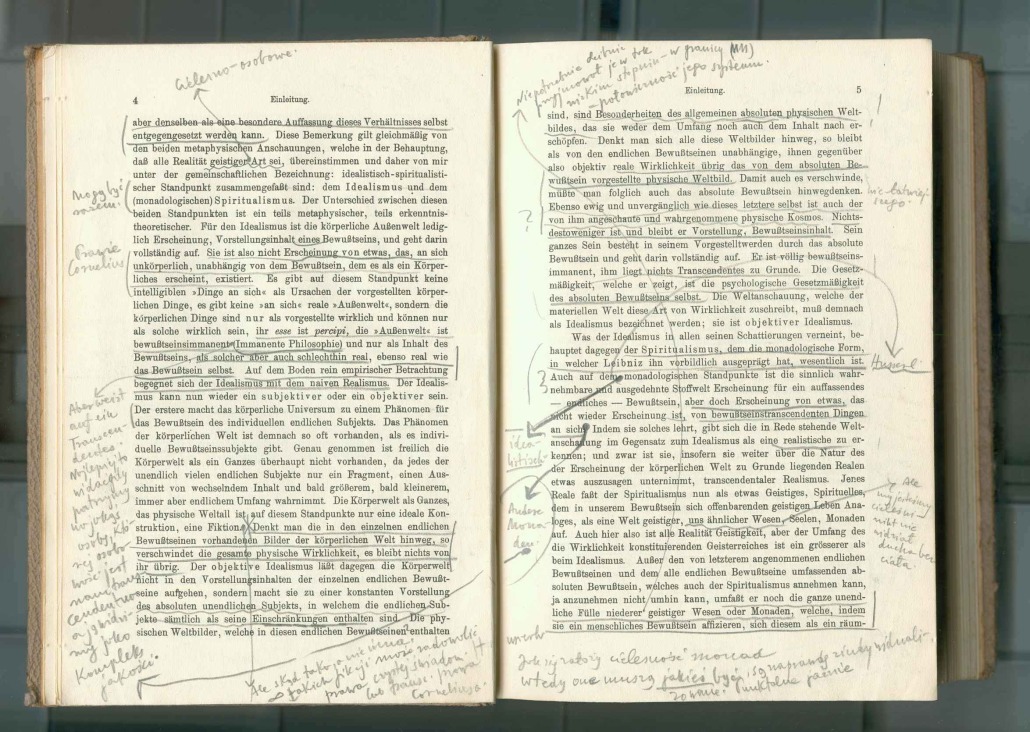 cielesno-osobowe.
4 Einleitung.
aber denselben als eine besondere Auffassung dieses Verhältnisses selbst
entgegengesetzt werden kann. Diese Bemerkung gilt gleichmäßig von
den beiden metaphysischen Anschauungen, welche in der Behauptung,
daß alle Realität geistiger Art sei, übereinstimmen und daher von mir
unter der gemeinschaftlichen Bezeichnung: idealistisch-spiritualisti-
scher Standpunkt zusammengefaßt sind: dem Idealismus und dem
(monadologischen) Spiritualismus. Der Unterschied zwischen diesen
beiden Standpunkten ist ein teils metaphysischer, teils erkenntnis-
theoretischer. Für den Idealismus ist die körperliche Außenwelt ledig-
lich Erscheinung, Vorstellungsinhalt eines Bewußtseins, und geht darin
vollständig auf. Sie ist also nicht Erscheinung von etwas, das, an sich
unkörperlich, unabhängig von dem Bewußtsein, dem es als ein Körper-
liches erscheint, existiert. Es gibt auf diesem Standpunkt keine
intelligiblen »Dinge an sich« als Ursachen der vorgestellten körper-
lichen Dinge, es gibt keine »an sich« reale »Außenwelt«, sondern die
körperlichen Dinge sind nur als vorgestellte wirklich und können nur
als solche wirklich sein, ihr esse ist percipi, die »Außenwelt« ist
bewußtseinsimmanent (Immanente Philosophie) und nur als Inhalt des
Bewußtseins, als solcher aber auch schlechthin real, ebenso real wie
das Bewußtsein selbst. Auf dem Boden rein empirischer Betrachtung
begegnet sich der Idealismus mit dem naiven Realismus. Der Idealis-
mus kann nun wieder ein subjektiver oder ein objektiver sein.
Der erstere macht das körperliche Universum zu einem Phänomen für
das Bewußtsein des individuellen endlichen Subjekts. Das Phänomen
der körperlichen Welt ist demnach so oft vorhanden, als es indivi-
duelle Bewußtseinssubjekte gibt. Genau genommen ist freilich die
Körperwelt als ein Ganzes überhaupt nicht vorhanden, da jedes der
unendlich vielen endlichen Subjekte nur ein Fragment, einen Aus-
schnitt von wechselndem Inhalt und bald größerem, bald kleinerem,
immer aber endlichem Umfang wahrnimmt. Die Körperwelt als Ganzes,
das physische Weltall ist auf diesem Standpunkte nur eine ideale Kon-
struktion, eine Fiktion. Denkt man die in den einzelnen endlichen
Bewußtseinen vorhandenen Bilder der körperlichen Welt hinweg, so
verschwindet die gesamte physische Wirklichkeit, es bleibt nichts von
ihr übrig. Der objektive Idealismus läßt dagegen die Körperwelt
nicht in den Vorstellungsinhalten der einzelnen endlichen Bewußt-
seine aufgehen, sondern macht sie zu einer konstanten Vorstellung
des absoluten unendlichen Subjekts, in welchem die endlichen Sub-
jekte sämtlich als seine Einschränkungen enthalten sind. Die phy-
sischen Weltbilder, welche in diesen endlichen Bewußtseinen enthalten
Cornelius
Kompleks
jakości.
Corneliusa.
Einleitung. 5
sind, sind Besonderheiten des allgemeinen absoluten physischen Welt-
bildes, das sie weder dem Umfang noch auch dem Inhalt nach er-
schöpfen. Denkt man sich alle diese Weltbilder hinweg, so bleibt
als von den endlichen Bewußtseinen unabhängige, ihnen gegenüber
also objektiv reale Wirklichkeit übrig das von dem absoluten Be-
wußtsein vorgestellte physische Weltbild. Damit auch es verschwinde,
müßte man folglich auch das absolute Bewußtsein hinwegdenken.
Ebenso ewig und unvergänglich wie dieses letztere selbst ist auch der
von ihm angeschaute und wahrgenommene physische Kosmos. Nichts-
destoweniger ist und bleibt er Vorstellung, Bewußtseinsinhalt. Sein
ganzes Sein besteht in seinem Vorgestelltwerden durch das absolute
Bewußtsein und geht darin vollständig auf. Er ist völlig bewußtseins-
immanent, ihm liegt nichts Transcendentes zu Grunde. Die Gesetz-
mäßigkeit, welche er zeigt, ist die psychologische Gesetzmäßigkeit
des absoluten Bewußtseins selbst. Die Weltanschauung, welche der
materiellen Welt diese Art von Wirklichkeit zuschreibt, muß demnach
als Idealismus bezeichnet werden; sie ist objektiver Idealismus.
Was der Idealismus in allen seinen Schattierungen verneint, be-
hauptet dagegen der Spiritualismus, dem die monadologische Form,
in welcher Leibniz ihn vorbildlich ausgeprägt hat, wesentlich ist.
Auch auf dem monadologischen Standpunkte ist die sinnlich wahr-
nehmbare und ausgedehnte Stoffwelt Erscheinung für ein auffassendes
— endliches — Bewußtsein, aber doch Erscheinung von etwas, das
nicht wieder Erscheinung ist, von bewußtseinstranscendenten Dingen
an sich. Indem sie solches lehrt, gibt sich die in Rede stehende Welt-
anschauung im Gegensatz zum Idealismus als eine realistische zu er-
kennen; und zwar ist sie, insofern sie weiter über die Natur des
der Erscheinung der körperlichen Welt zu Grunde liegenden Realen
etwas auszusagen unternimmt, transcendentaler Realismus. Jenes
Reale faßt der Spiritualismus nun als etwas Geistiges, Spirituelles,
dem in unserem Bewußtsein sich offenbarenden geistigen Leben Ana-
loges, als eine Welt geistiger, uns ähnlicher Wesen, Seelen, Monaden
auf. Auch hier also ist alle Realität Geistigkeit, aber der Umfang des
die Wirklichkeit konstituierenden Geisterreiches ist ein grösserer als
beim Idealismus. Außer den von letzterem angenommenen endlichen
Bewußtseinen und dem alle endlichen Bewußtseine umfassenden ab-
soluten Bewußtsein, welches auch der Spiritualismus annehmen kann,
ja anzunehmen nicht umhin kann, umfaßt er noch die ganze unend-
liche Fülle niederer geistiger Wesen oder Monaden, welche, indem
sie ein menschliches Bewußtsein affizieren, sich diesem als ein räum-
?
Husserl
Andere
Mona-
den.
cielesność monad
wtedy one muszą jakieś być